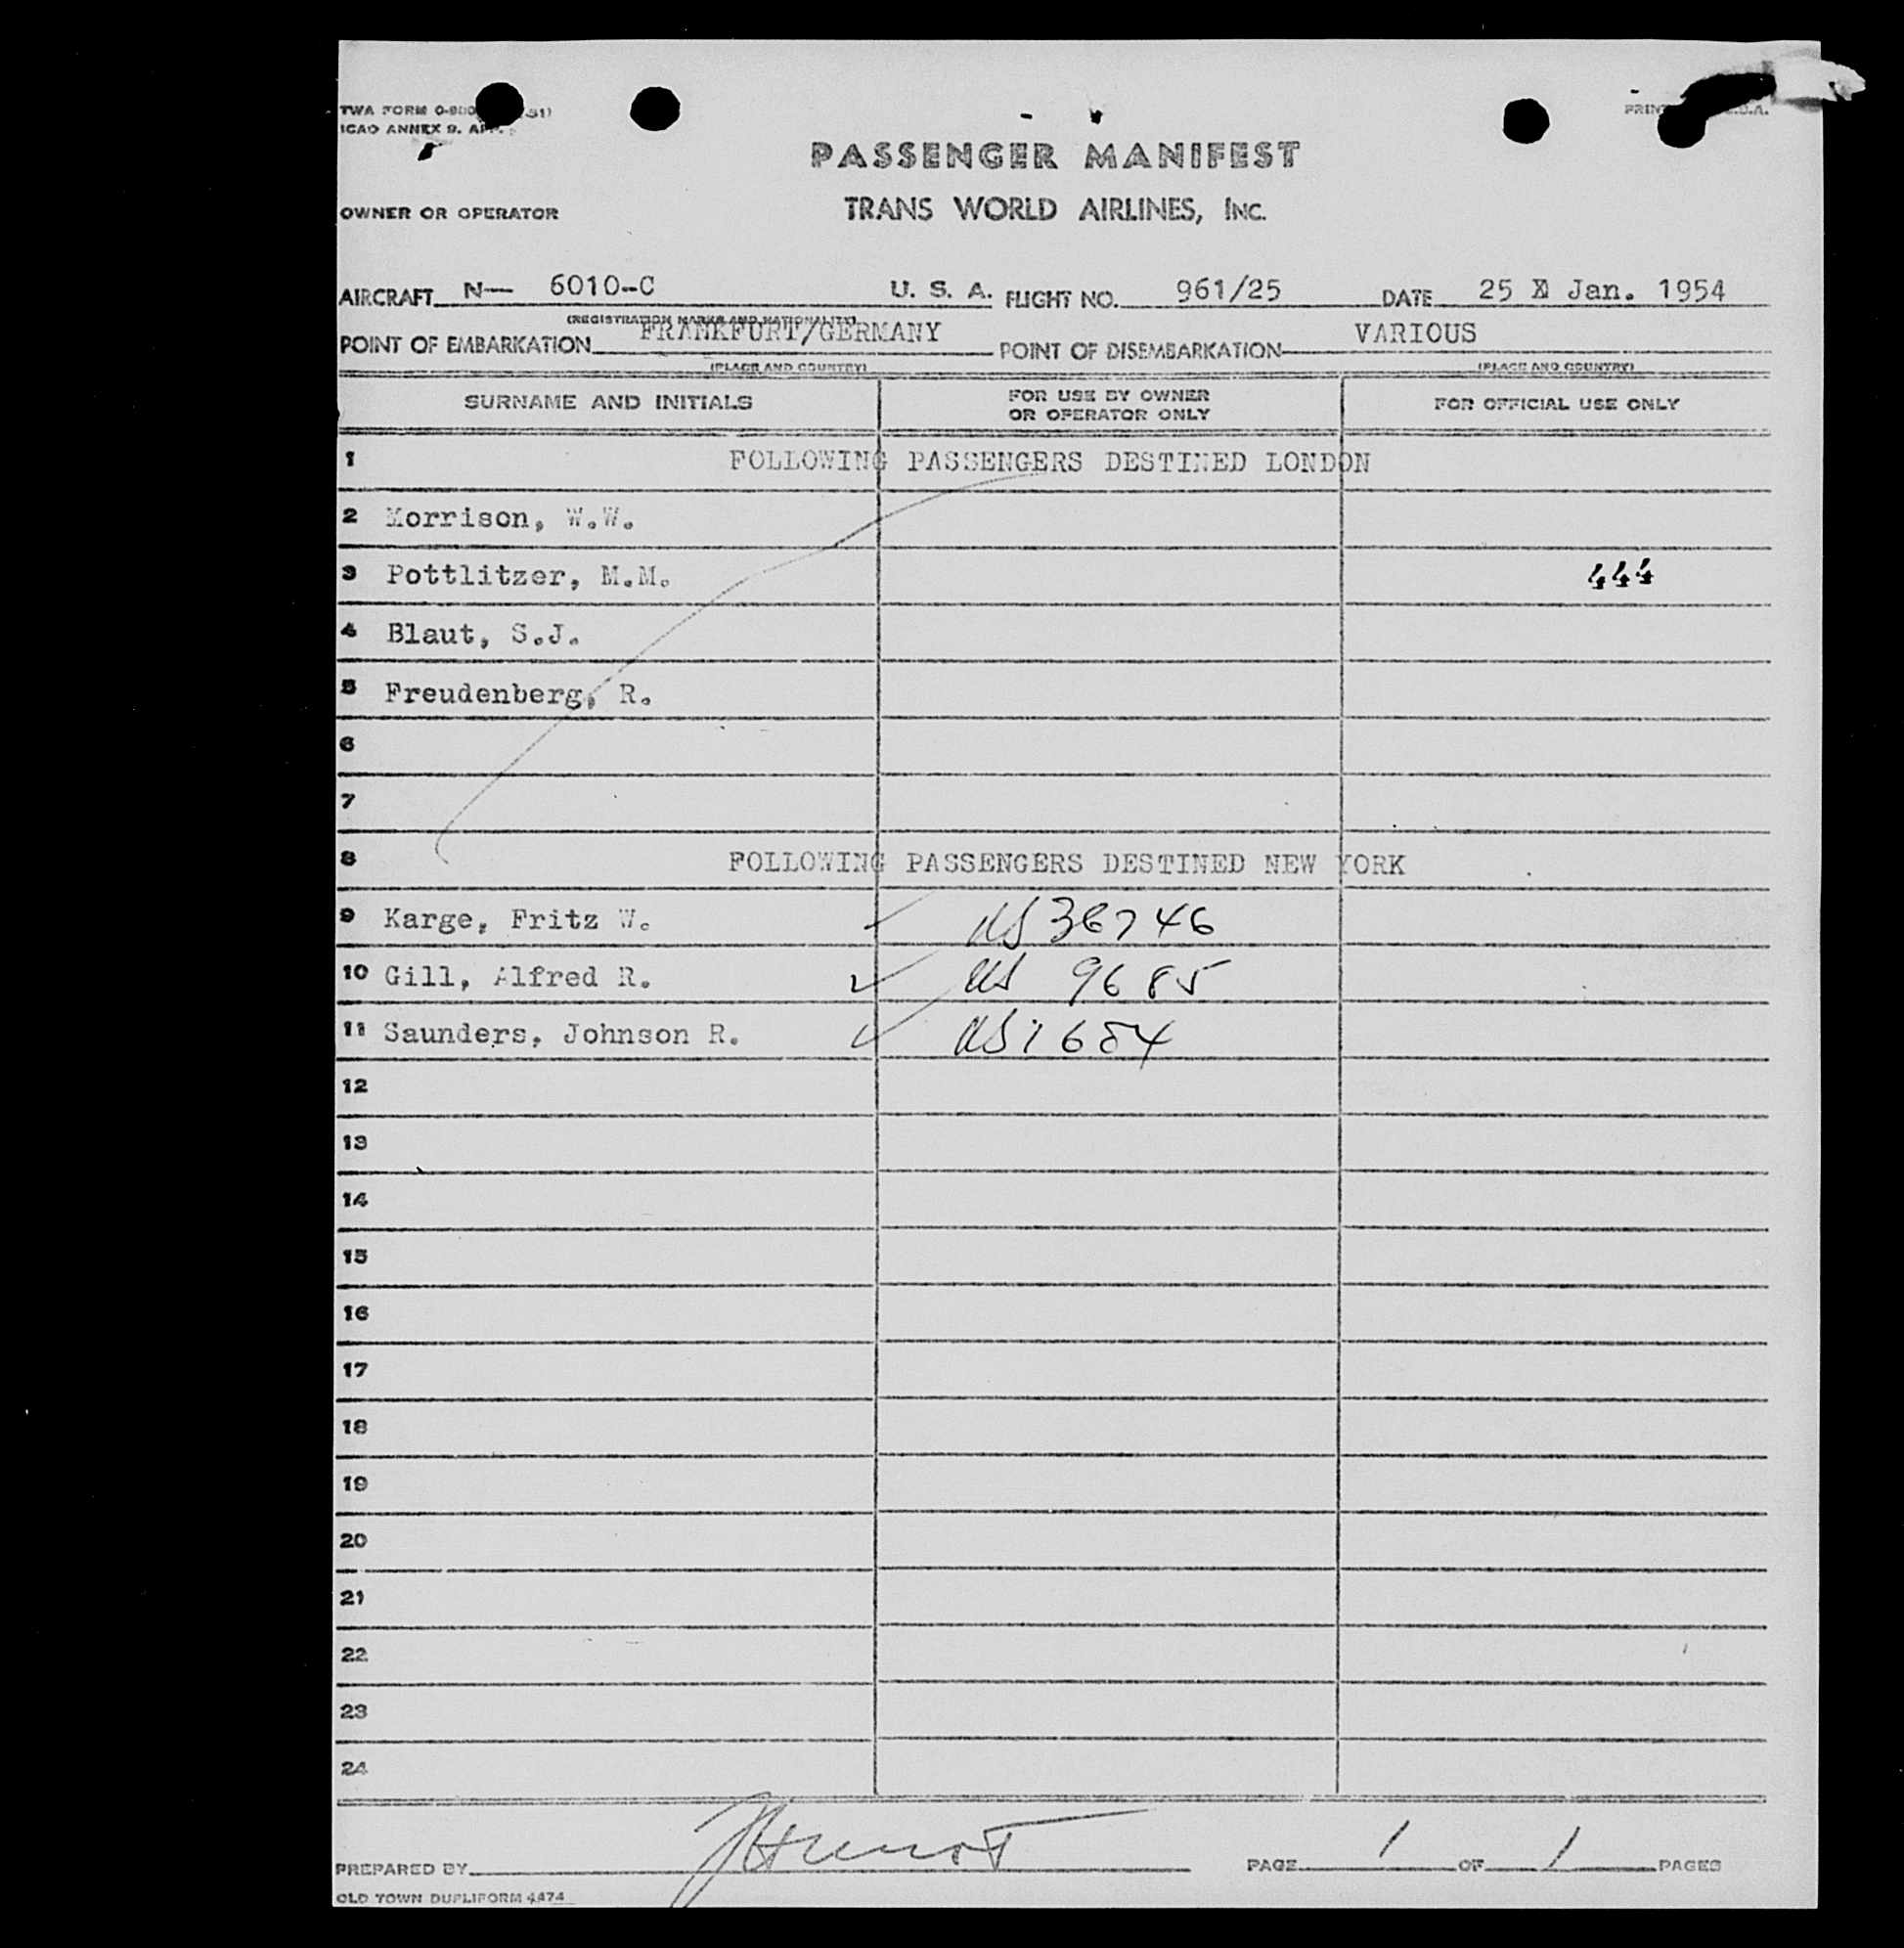 TWA FORM 0-800
ICAO ANNEX 9. APP.
PASSENGER MANIFEST
OWNER OR OPERATOR TRANS WORLD AIRLINES, INC.
AIRCRAFT N— 6010-C U. S. A. FLIGHT NO. 961/25 DATE 25 X Jan. 1954
(REGISTRATION MARKS AND NATIONALITY)
POINT OF EMBARKATION FRANKFURT/GERMANY POINT OF DISEMBARKATION VARIOUS
(PLACE AND COUNTRY) (PLACE AND COUNTRY)
SURNAME AND INITIALS FOR USE BY OWNER OR OPERATOR ONLY FOR OFFICIAL USE ONLY
1 FOLLOWING PASSENGERS DESTINED LONDON
2 Morrison, W.W.
3 Pottlitzer, M.M. 444
4 Blaut, S.J.
5 Freudenberg, R.
6
7
8 FOLLOWING PASSENGERS DESTINED NEW YORK
9 Karge, Fritz W. ✓ US 36746
10 Gill, Alfred R. ✓ US 9685
11 Saunders, Johnson R. ✓ US 1654
12
13
14
15
16
17
18
19
20
21
22
23
24
PREPARED BY PAGE 1 OF 1 PAGES
OLD TOWN DUPLIFORM 4474